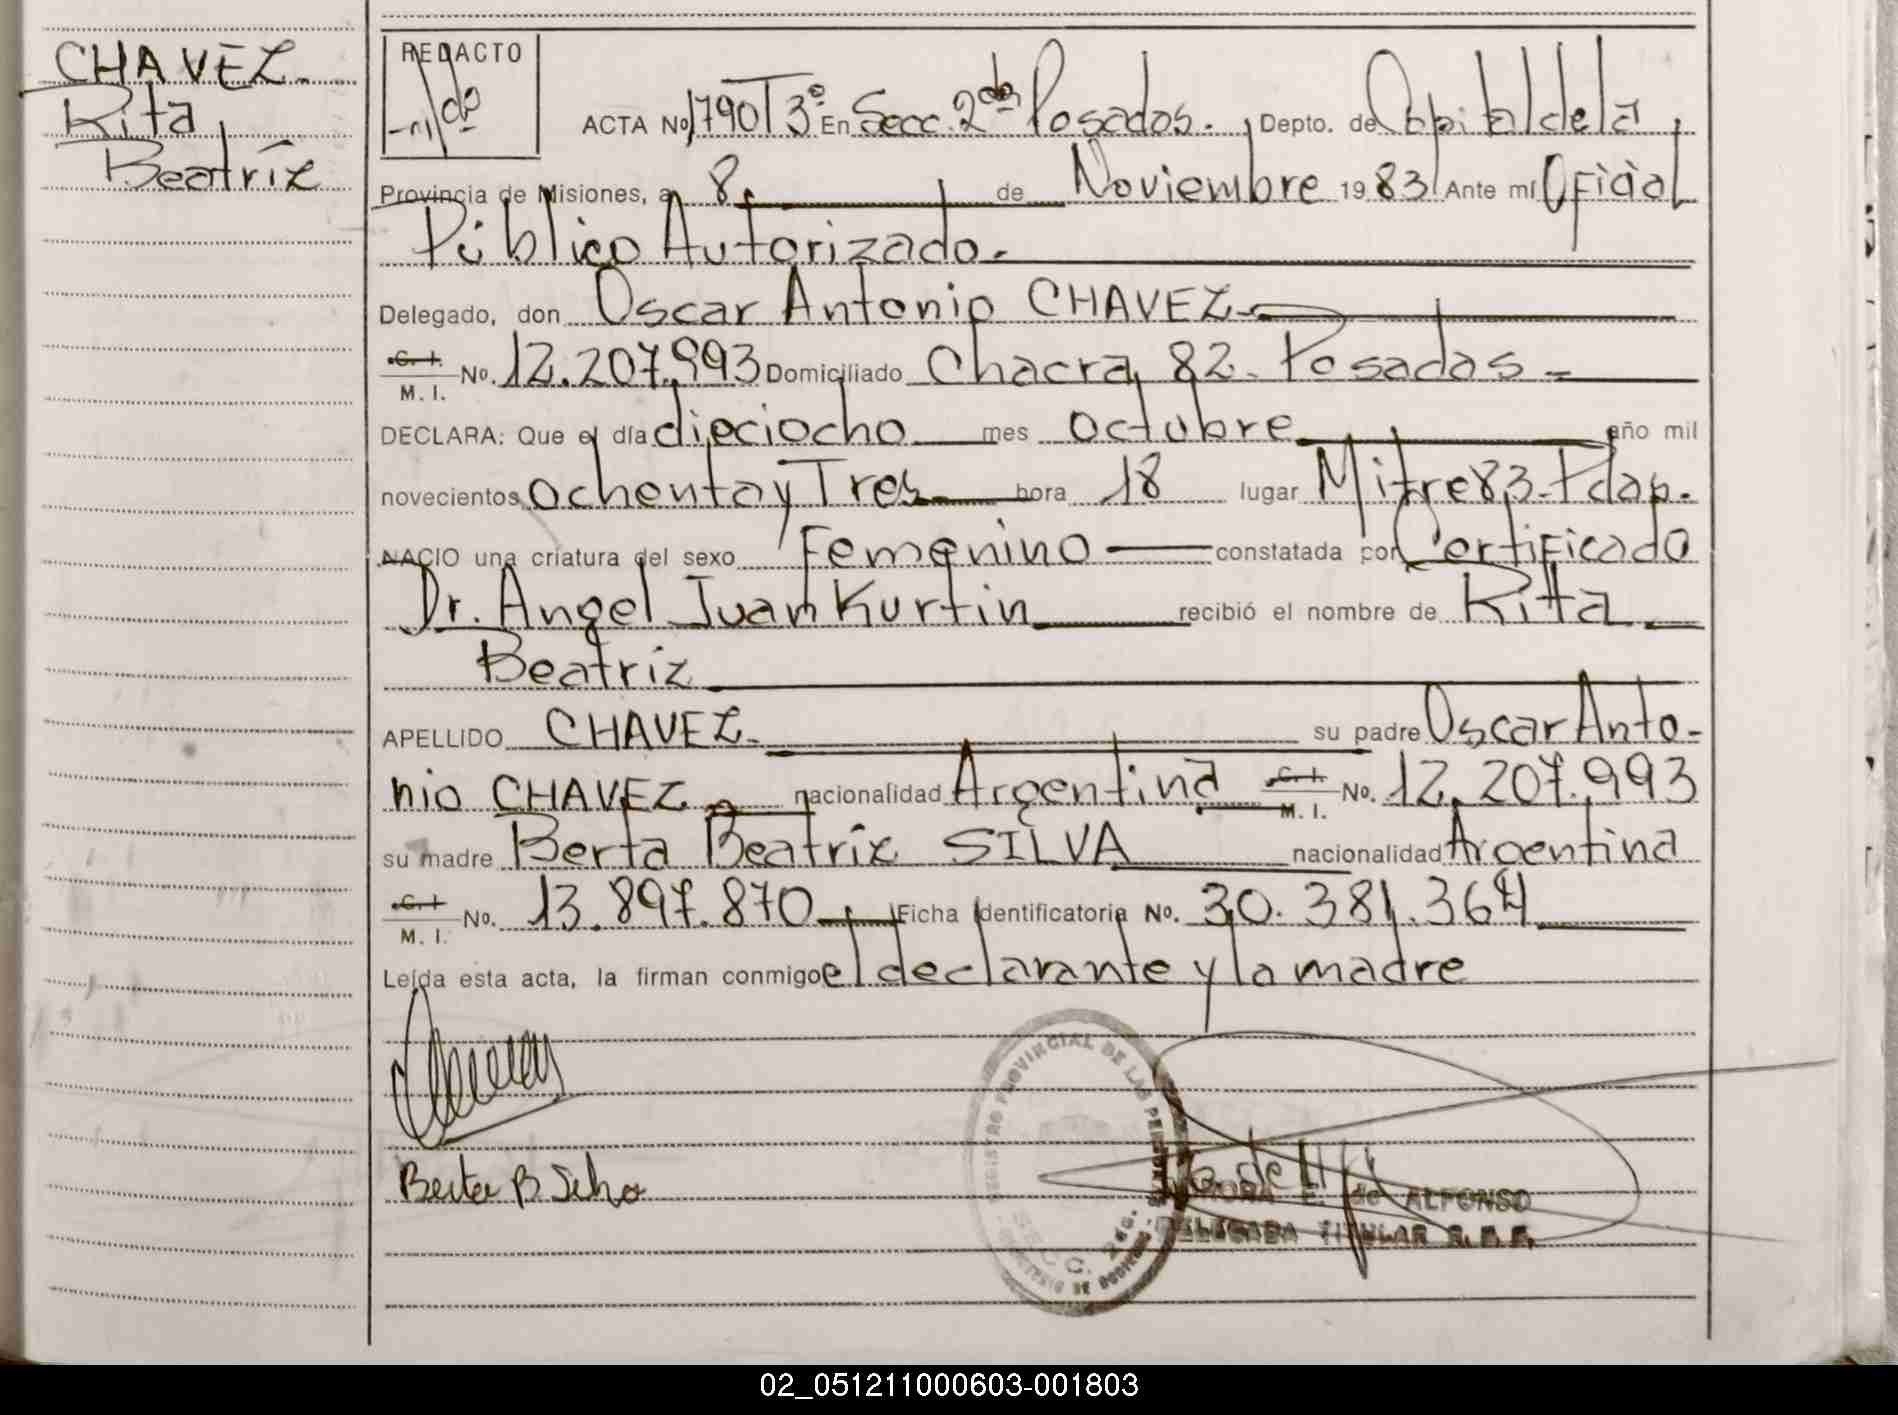 CHAVEZ.
Rita
Beatríz
REDACTO
ACTA Nº 1790 T 3º En Secc. 2da Posadas. Depto. de Capital de la
Provincia de Misiones, a 8. de Noviembre 1983 Ante mí Oficial
Público Autorizado.
Delegado, don Oscar Antonio CHAVEZ
C. I.
M. I. Nº. 12.207.993 Domiciliado Chacra 82 - Posadas -
DECLARA: Que el día dieciocho mes octubre año mil
novecientos ochenta y Tres hora 18 lugar Mitre 83 - Pdas.
NACIO una criatura del sexo Femenino constatada por Certificado
Dr. Angel Juan Kurtin recibió el nombre de Rita
Beatriz
APELLIDO CHAVEZ. su padre Oscar Anto-
nio CHAVEZ nacionalidad Argentina C. I. M. I. Nº. 12.207.993
su madre Berta Beatriz SILVA nacionalidad Argentina
C. I.
M. I. Nº. 13.897.870 Ficha Identificatoria Nº. 30.381.364
Leída esta acta, la firman conmigo el declarante y la madre
Berta B Silva
REGISTRO PROVINCIAL DE LAS PERSONAS
SECC. 2da.
MINISTERIO DE GOBIERNO
E. de ALFONSO
DELEGADA TITULAR R.P.P.
02_051211000603-001803